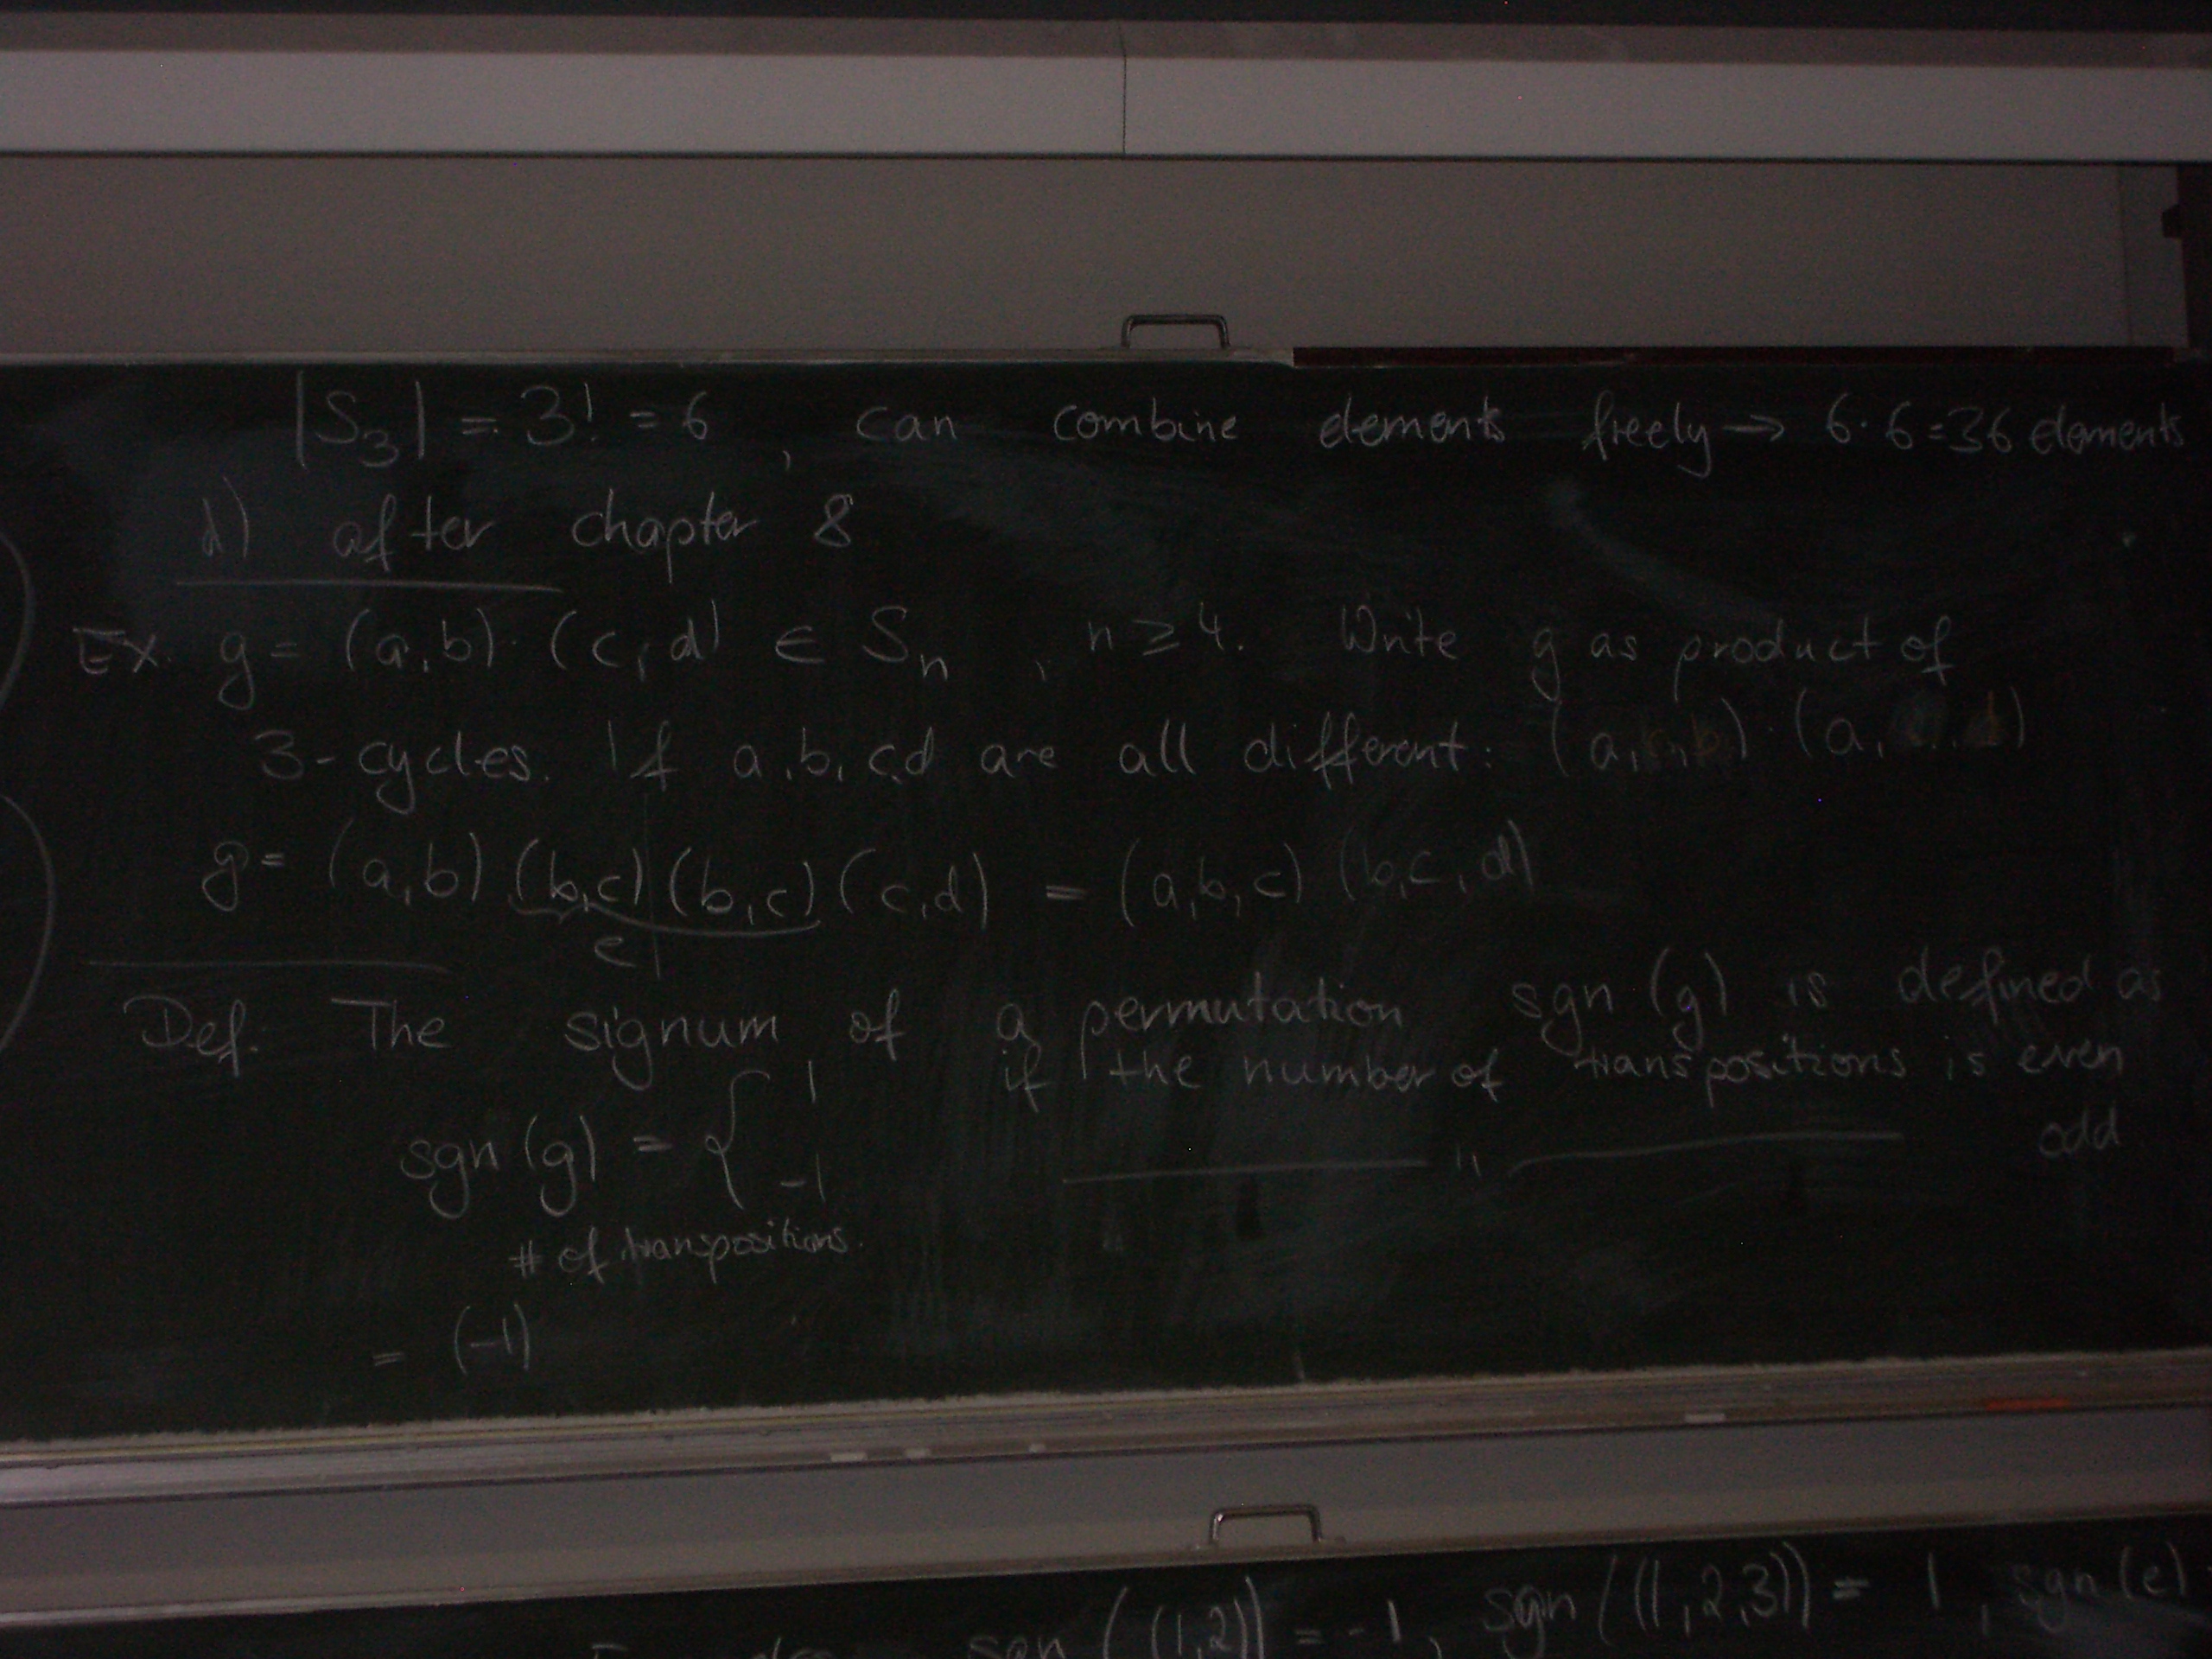 |S₃| = 3! = 6 , can combine elements freely → 6·6=36 elements
d) after chapter 8
Ex. g = (a,b)·(c,d) ∈ Sₙ , n ≥ 4. Write g as product of
3-cycles. If a,b,c,d are all different: (a,c,b)·(a, d)
g = (a,b)(b,c)(b,c)(c,d) = (a,b,c)(b,c,d)
e
Def. The signum of a permutation sgn(g) is defined as
sgn(g) = { 1 if the number of transpositions is even
-1 —— " —— odd
# of transpositions.
= (-1)
sgn((1,2)) = -1, sgn((1,2,3)) = 1, sgn(e)